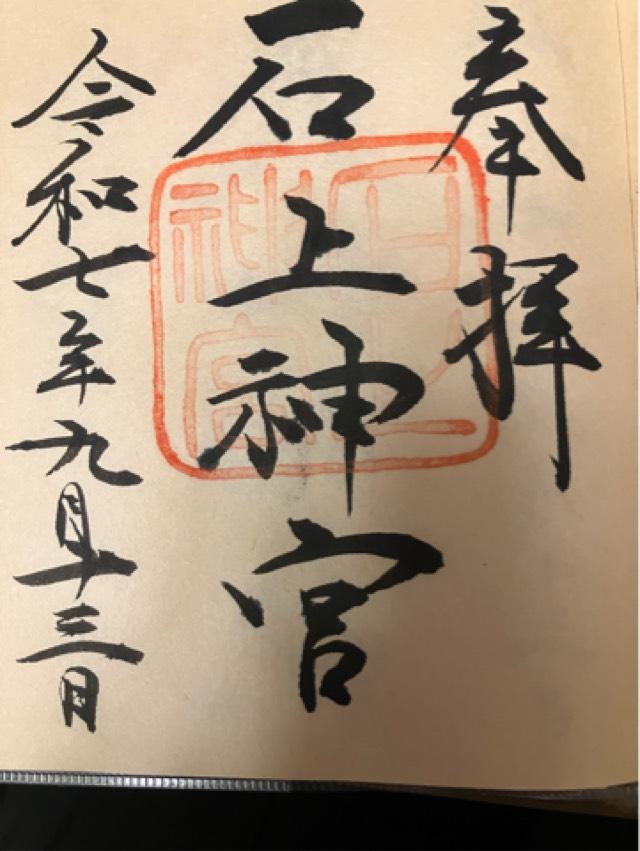 奉拝
石上神宮
石上神宮
令和七年九月十三日